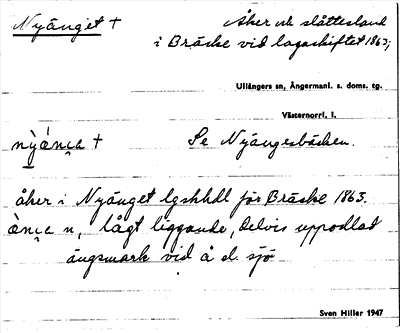 Nyänget + Åker och slåttesland
i Bräcke vid lagaskiftet 1863;
Ullångers sn, Ångermanl. s. doms. tg.
Västernorrl. l.
+ Se Nyängesbäcken.
åker i Nyänget lgskhdl för Bräcke 1863.
n, lågt liggande, delvis uppodlad
ängsmark vid å el. sjö
Sven Hiller 1947